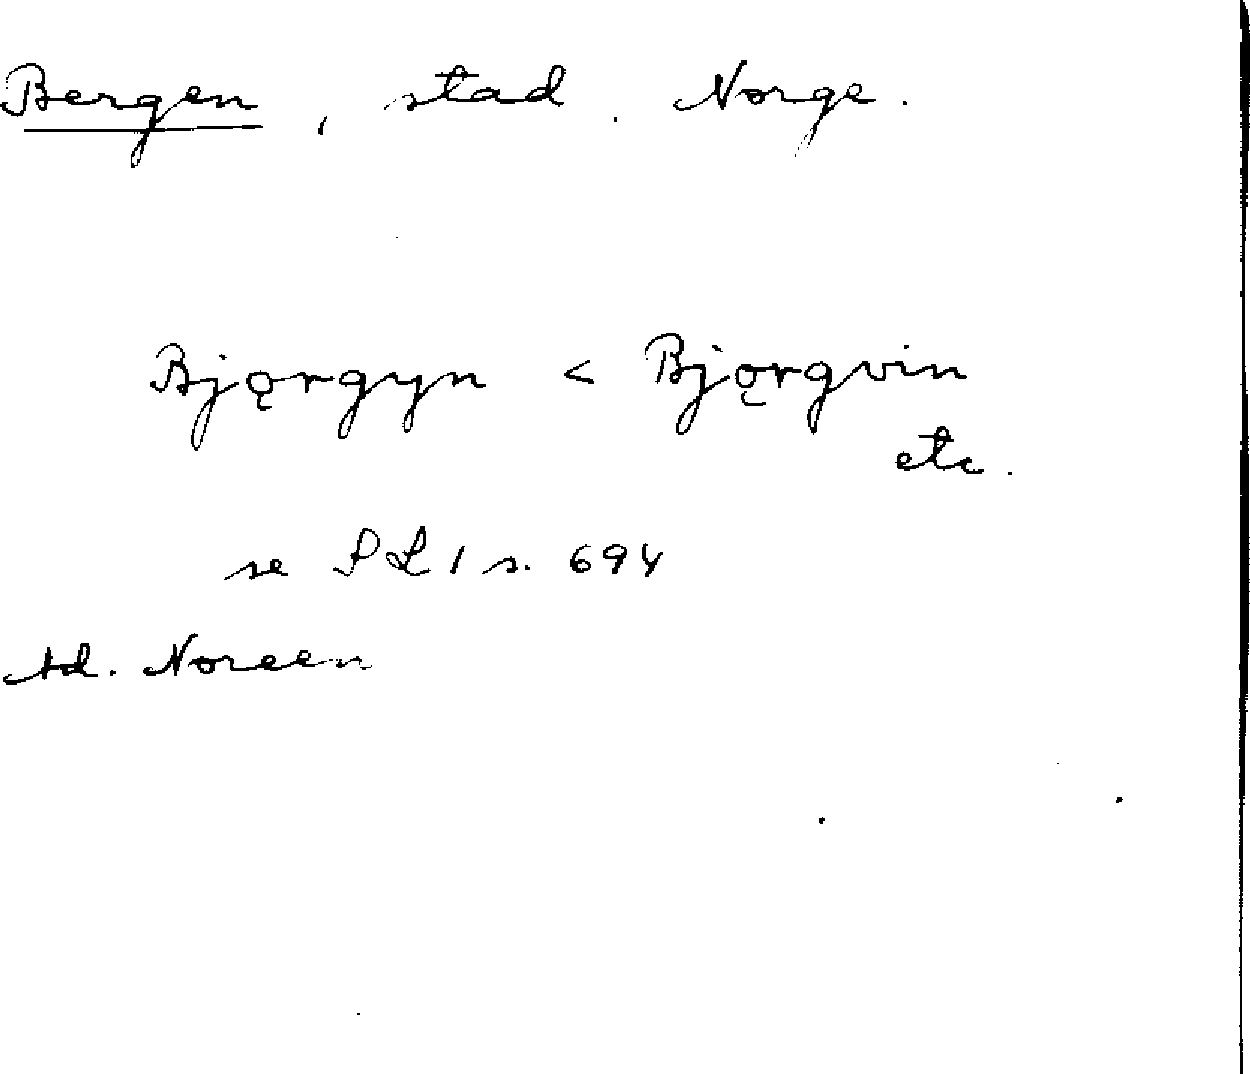 Bergen, stad. Norge.
Bjǫrgyn < Bjǫrgvin
etc.
se PL 1 s. 694
Ad. Noreen